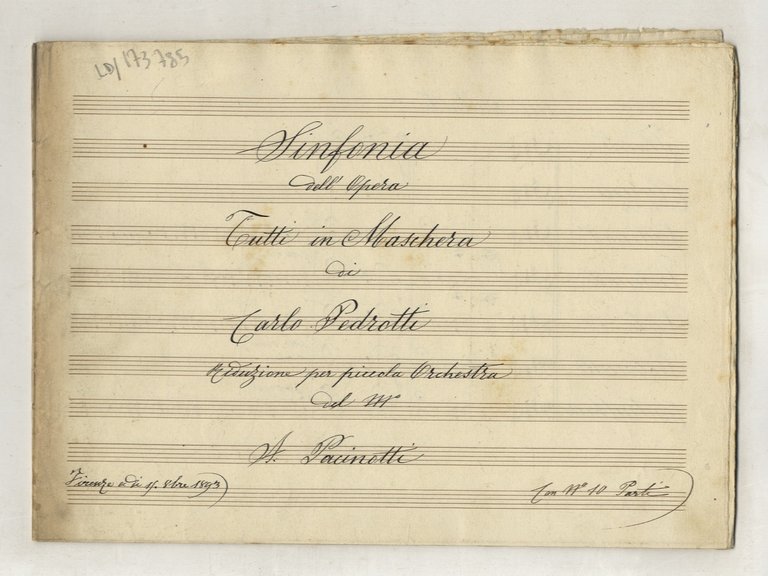 LD/173 785
Sinfonia
dell' Opera
Tutti in Maschera
di
Carlo Pedrotti
Riduzione per piccola Orchestra
del Mo
A. Pacinotti
Firenze a di 8bre 1893
Con No 10 Parti